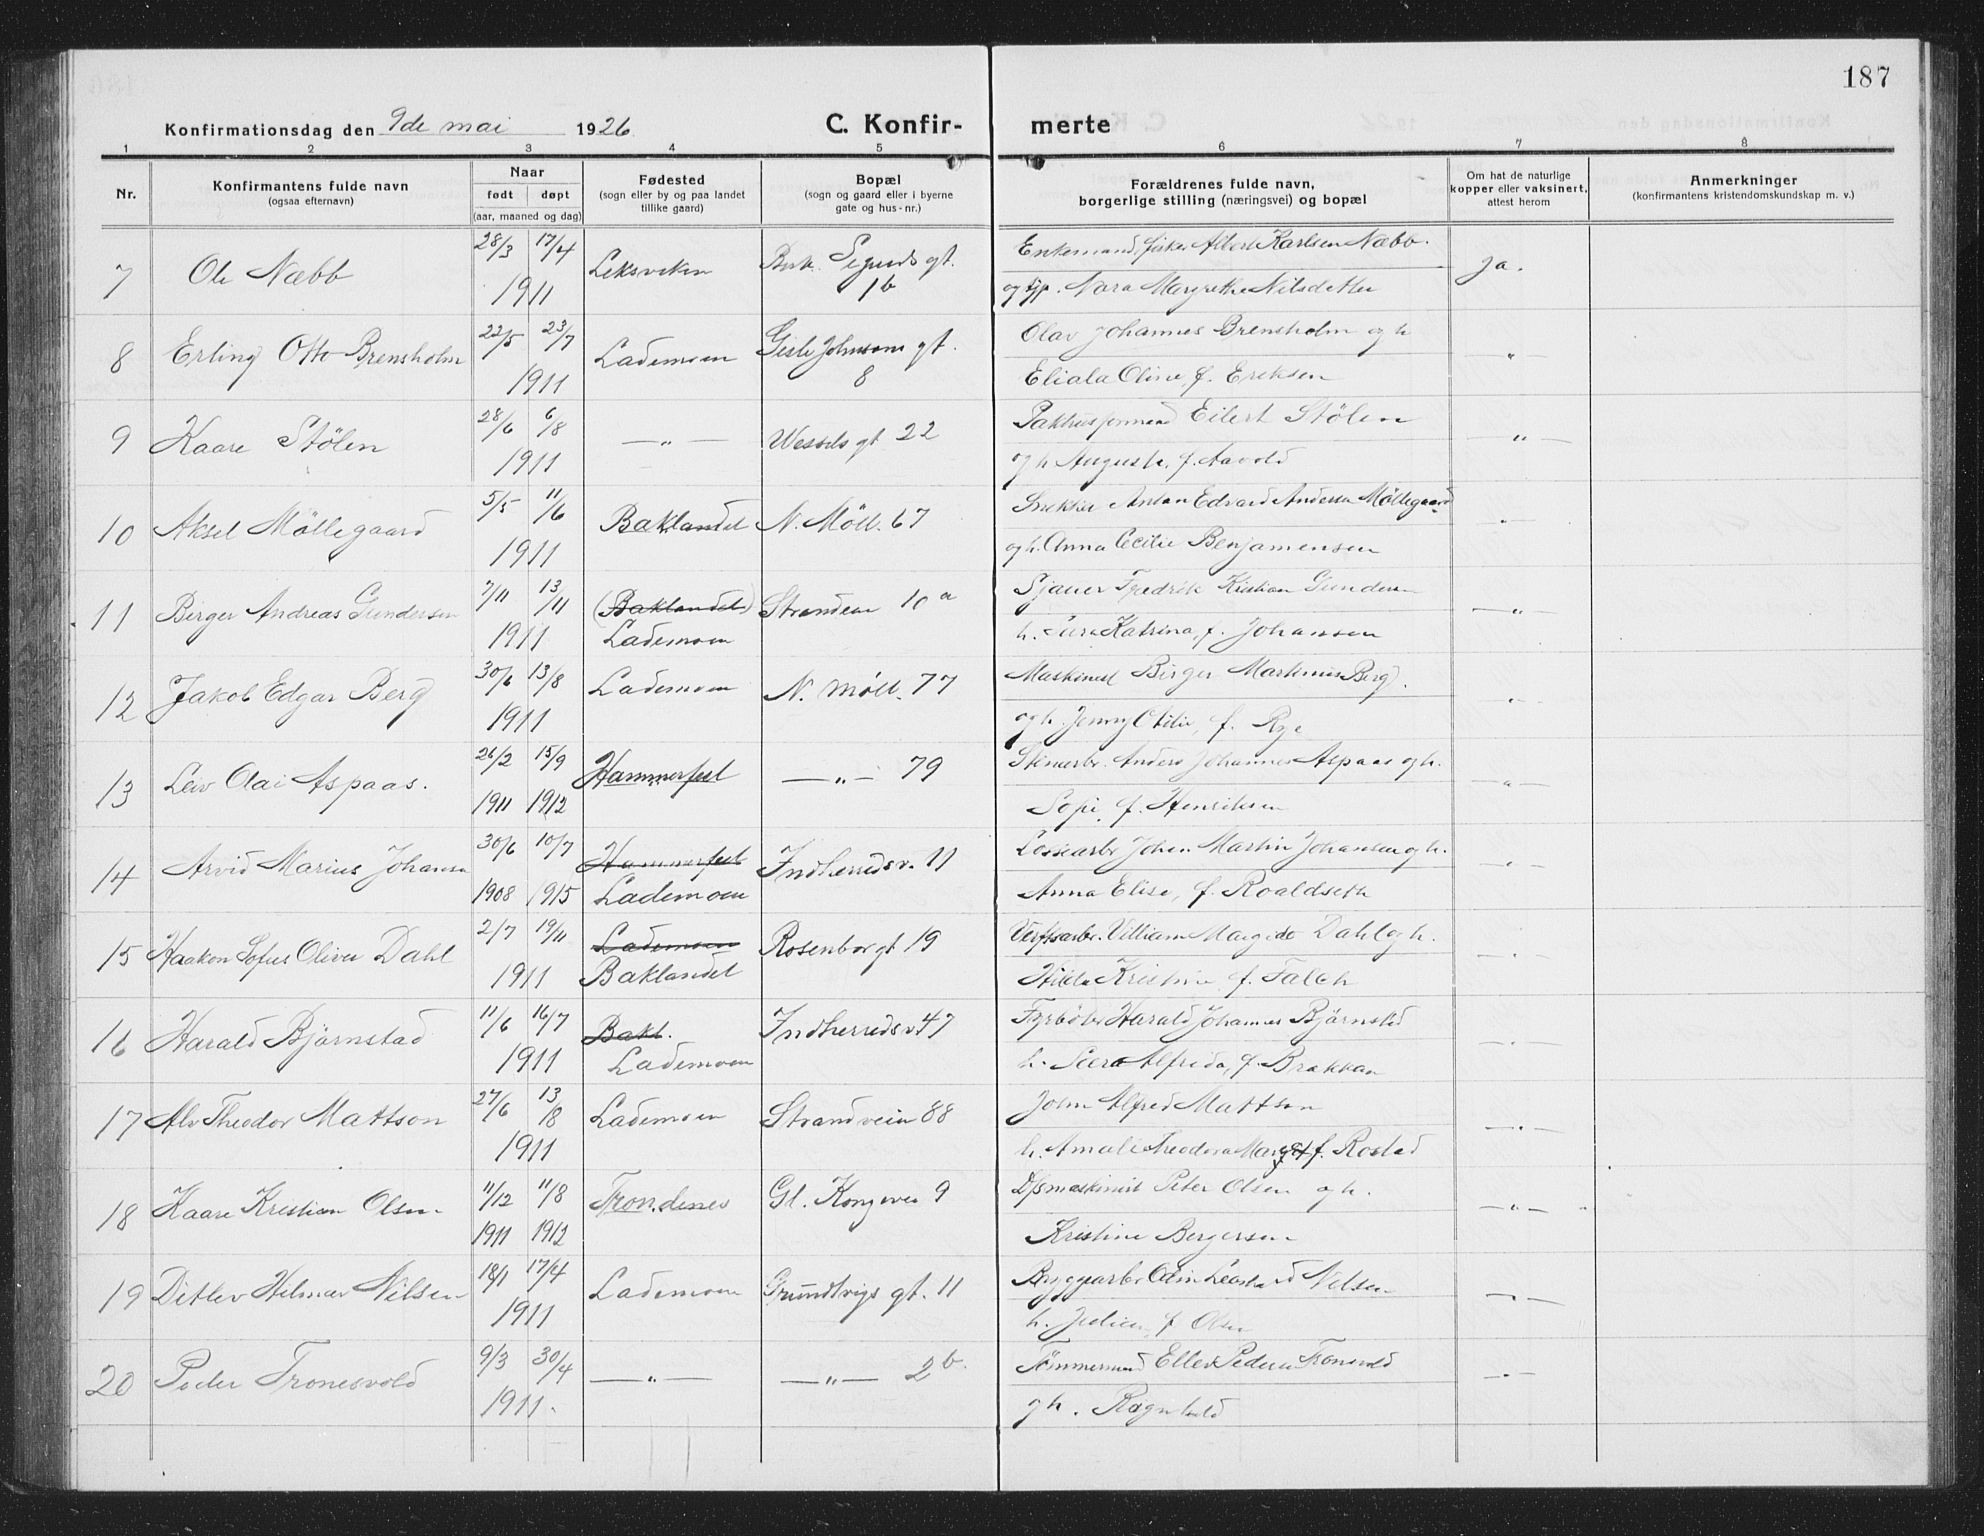 187
Konfirmationsdag den 9de mai 1926
C. Konfirmerte
1 2 3 4 5 6 7 8
Nr.
Konfirmantens fulde navn
(ogsaa efternavn)
Naar
født døpt
(aar, maaned og dag)
Fødested
(sogn eller by og paa landet
tillike gaard)
Bopæl
(sogn og gaard eller i byerne
gate og hus-nr.)
Forældrenes fulde navn,
borgerlige stilling (næringsvei) og bopæl
Om hat de naturlige
kopper eller vaksinert,
attest herom
Anmerkninger
(konfirmantens kristendomskundskap m. v.)
7 Ole Næbb 28/3 17/4 1911 Leksviken Sigurds gt. 1b
Enkemand, Albert Karlsen Næbb. ja.
og Nora Margrethe Nilsdatter
8 Erling Otto Brensholm 22/5 23/7 1911 Lademoen Gisle Johnsons gt. 8
Olav Johannes Brensholm og h "
Eliala Oline, f. Eriksen
9 Kaare Stölen 28/6 6/8 1911 —"— Wessels gt 22
Pakhusformand Eilert Stölen —"—
og h Augusta, f. Aavold
10 Aksel Möllegaard 5/5 11/6 1911 Baklandet N. Möll. 67
Snekker Anton Edvard Andersen Möllegaard "
og h. Anna Cecilie Benjamensen
11 Birger Andreas Gundersen 7/11 13/11 1911 (Baklandet) Lademoen Strandvein 10a
Sjauer Fredrik Kristian Gundersen —"—
h. Katrina, f. Johansen
12 Jakob Edgar Berg 30/6 13/8 1911 Lademoen N. Möll. 77
Maskinist Birger Martinus Berg. —"—
og h. Jenny Otilie, f. Rye
13 Leiv Olai Aspaas. 26/2 15/9 1911 1912 Hammerfest —"— 79
Stenarbr. Anders Johannes Aspaas og h. —"—
Sofie, f. Henriksen
14 Arvid Marius Johansen 30/6 10/7 1908 1915 Hammerfest Lademoen Indherredsv. 11
Lossearbr Johan Martin Johansen og h. —"—
Anna Elise, f. Roaldseth
15 Haakon Sofus Oliver Dahl 2/7 19/11 1911 Lademoen Baklandet Rosenborgt 19
Verftsarbr. Villiam Dahl og h. —"—
Hilda Kristine, f. Falch
16 Harald Björnstad 11/6 16/7 1911 Bakl. Lademoen Indherredsv 47
Fyrböter Harald Johannes Björnstad —"—
h. Alfreda, f. Brækkan
17 Alv Theodor Mattson 27/6 13/8 1911 Lademoen Strandveien 88
John Alfred Mattson —"—
h. Amalie Theodora Margret f. Rostad
18 Kaare Kristian Olsen 11/12 11/8 1911 1912 Trondenes Gl. Kongevei 9
D/smaskinist Peter Olsen og h. —"—
Kristine Bergersen
19 Ditlev Hilmar Nilsen 18/1 17/4 1911 Lademoen Grundtvigs gt. 11
Bryggearbr Odin Nilsen —"—
h. f Olsen
20 Peder Tronesvold 9/3 30/4 1911. —"— —"— 2b.
Tömmermand Ellev Pedersen Tronsvold —"—
og h. Ragnhild